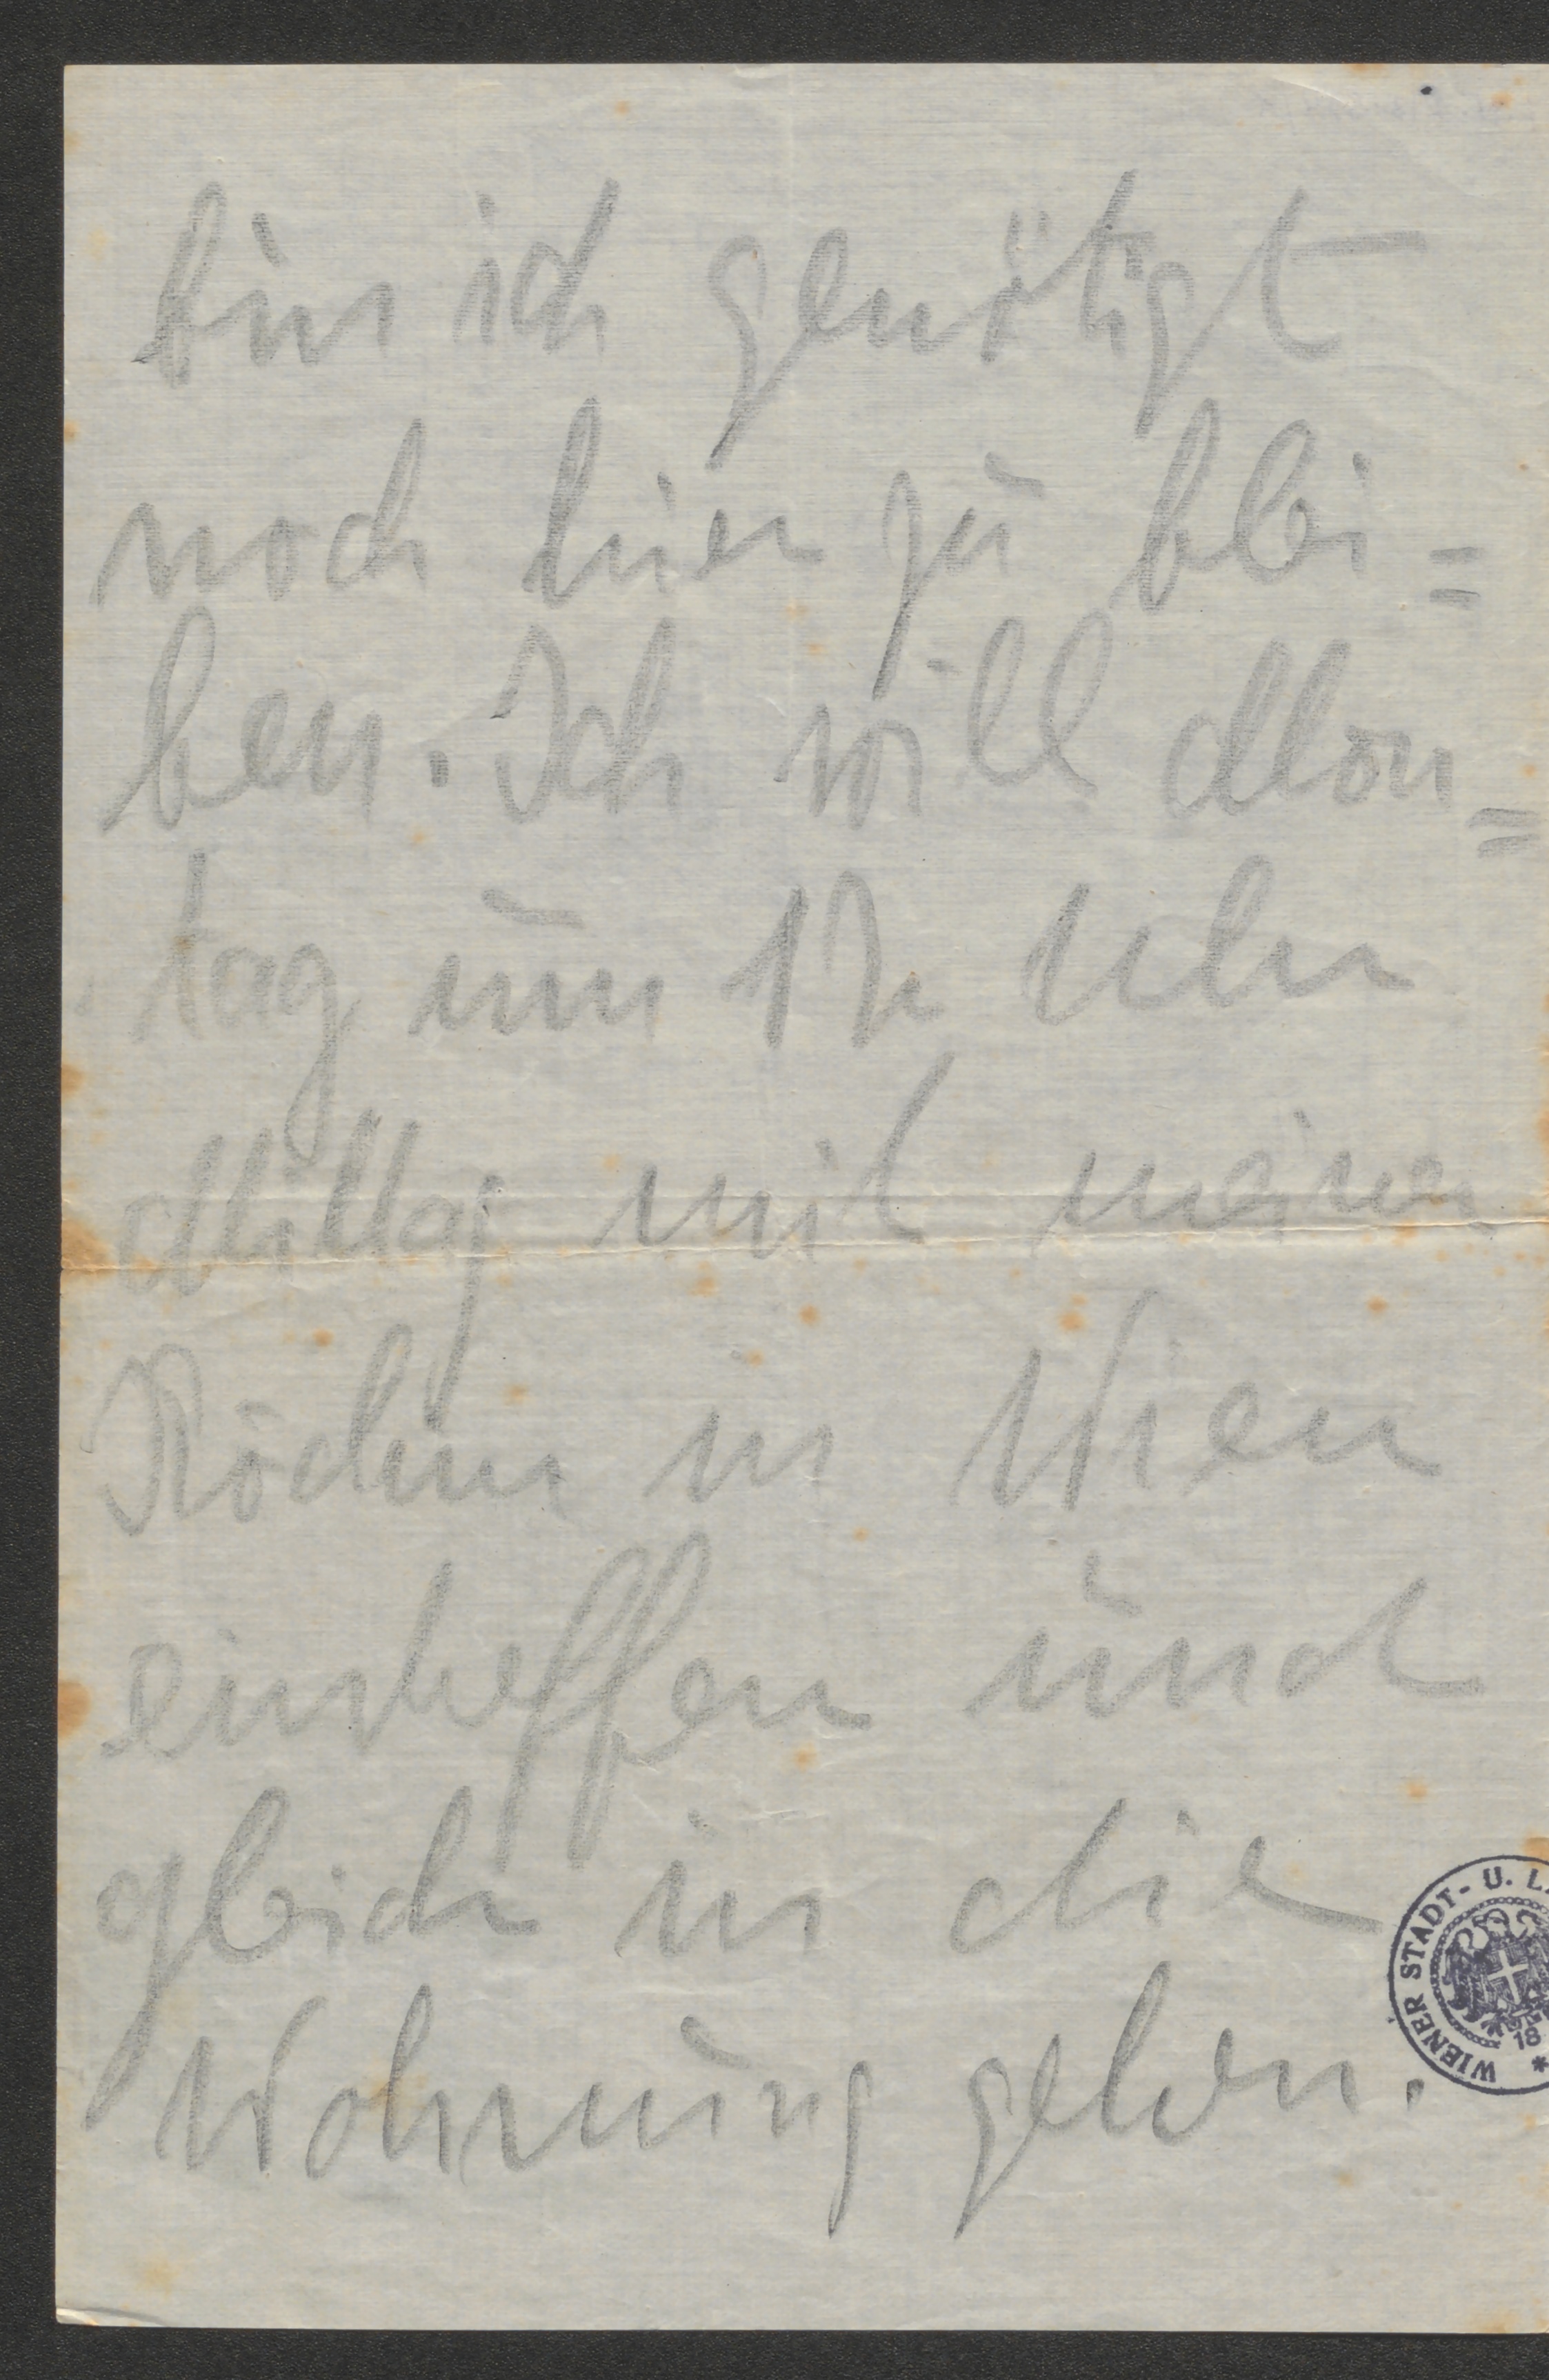 bin ich genötigt
noch hier zu blei=
ben. Ich will Mon=
tag um 12 Uhr
Mittag mit meiner
Köchin in Wien
eintreffen und
gleich in die
Wohnung gehen.
WIENER STADT- U. L
18